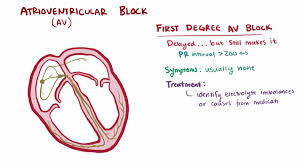 ATRIOVENTRICULAR BLOCK
(AV)
FIRST DEGREE AV BLOCK
Delayed....but Still makes it
PR interval > 200 ms
Symptoms: usually none
Treatment:
↳ identify electrolyte imbalances
or causes from medicati